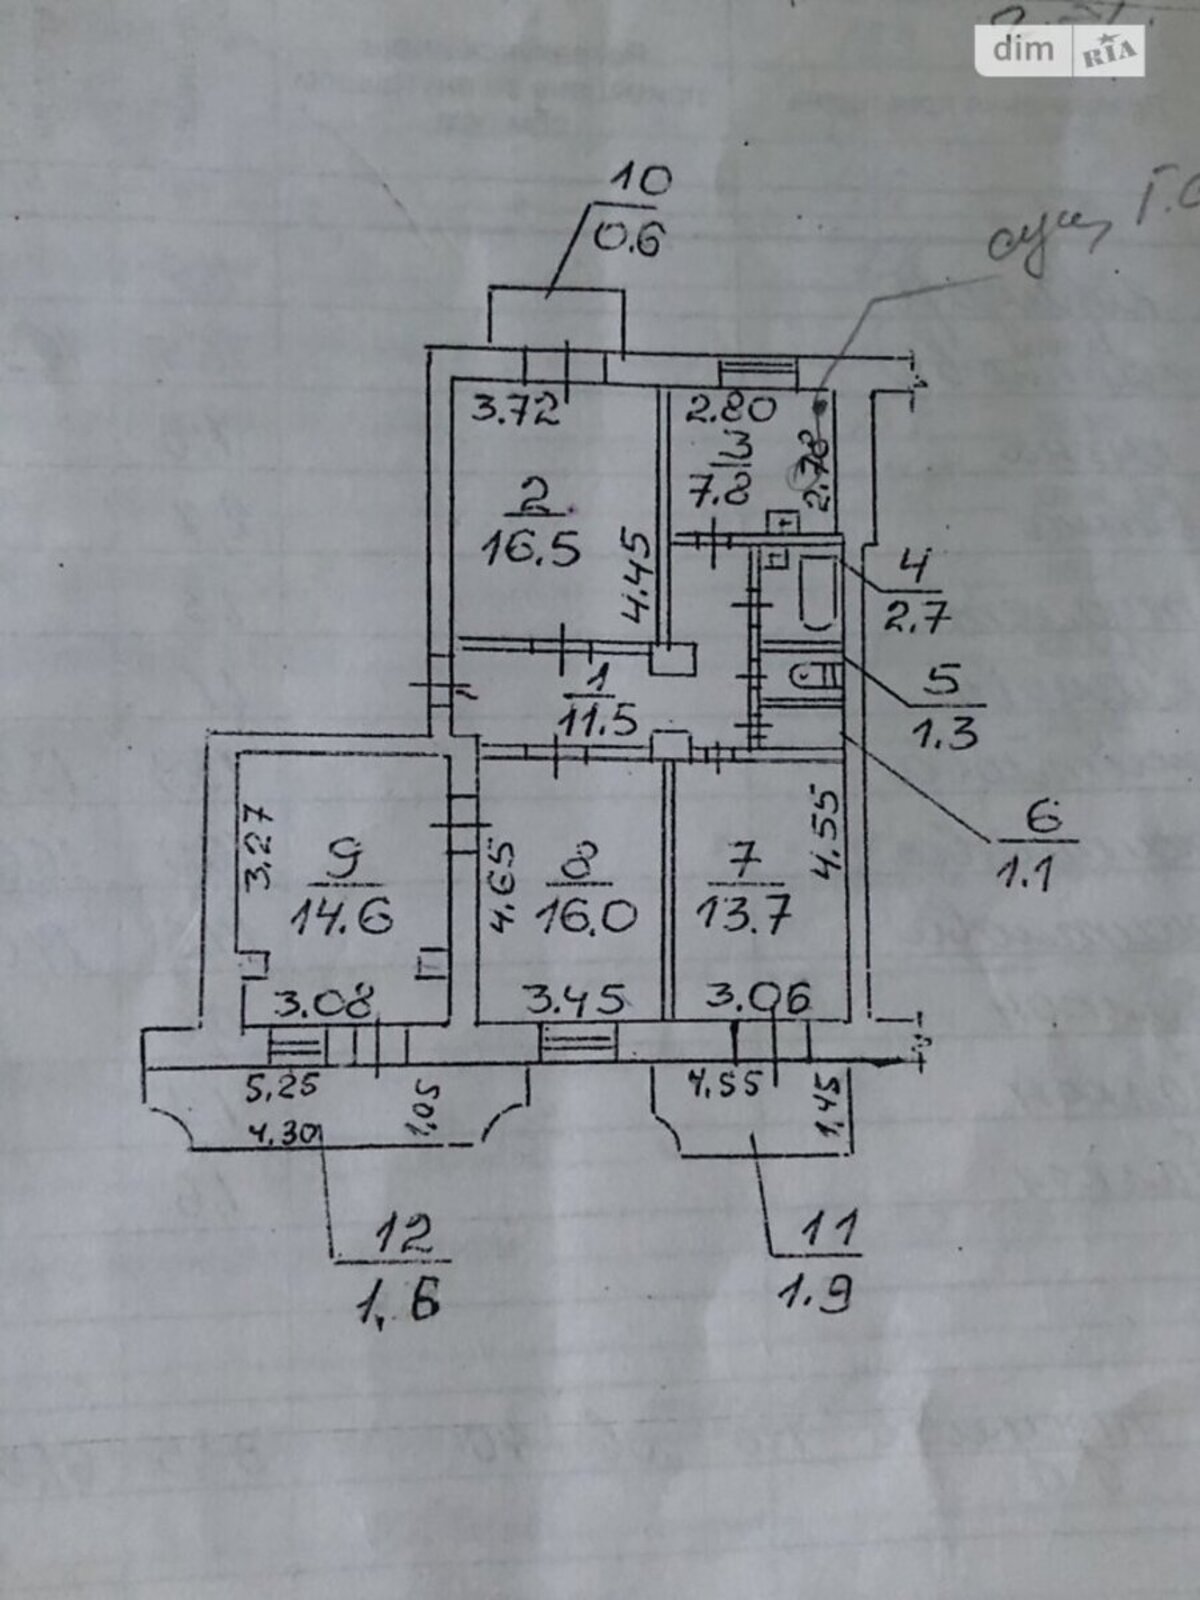 dim RIA
10
0.6
сущ. Г.С
3.72
2.80
3
7.8
2.78
2
16.5
4.45
4
2.7
5
1.3
1
11.5
6
1.1
3.27
9
14.6
4.65
8
16.0
7
13.7
4.55
3.08
3.45
3.06
5.25
4.30
1.05
4.55
1.45
12
1.6
11
1.9